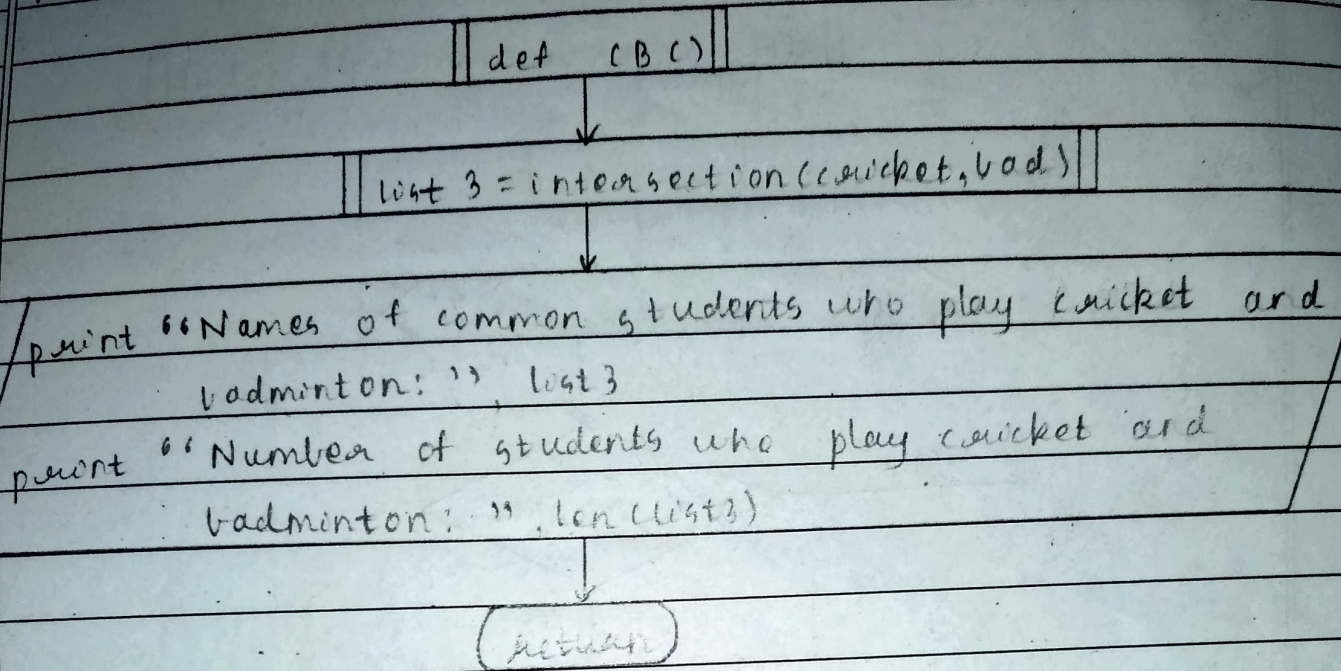 def CBC()
list 3 = intersection(cricket, bad)
print “Names of common students who play cricket and
badminton: ”, list 3
print “Number of students who play cricket and
badminton: ”, len(list3)
return